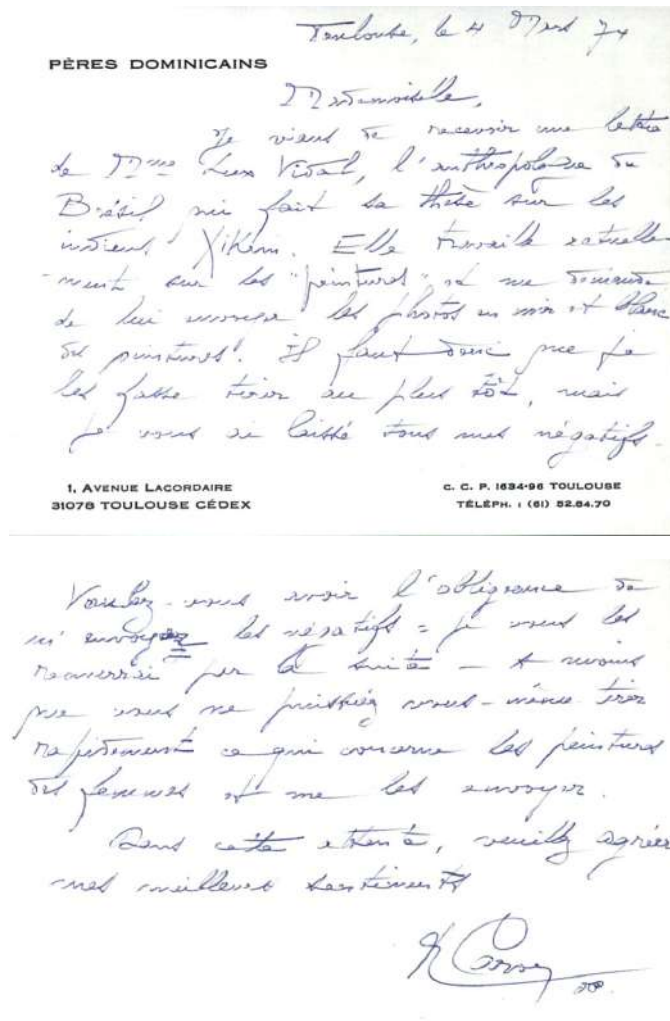 Toulouse, le 4 Mars 74
PÈRES DOMINICAINS
Mademoiselle,
Je viens de recevoir une lettre
de Mme Lux Vidal, l'anthropologue du
Brésil qui fait sa thèse sur les
indiens Xikrin. Elle travaille actuelle-
ment sur les "peintures" et me demande
de lui envoyer les photos en noir et blanc
des peintures. Il faut donc que je
les fasse tirer au plus tôt, mais
je vous ai laissé tous mes négatifs.
1, AVENUE LACORDAIRE
31078 TOULOUSE CÉDEX
C. C. P. 1634-96 TOULOUSE
TÉLÉPH. : (61) 52.84.70
Voulez-vous avoir l'obligeance de
m'envoyer les négatifs = je vous les
renverrai par la suite - A moins
que vous ne puissiez vous-même tirer
rapidement ce qui concerne les peintures
des femmes et me les envoyer.
Dans cette attente, veuillez agréer
mes meilleurs sentiments